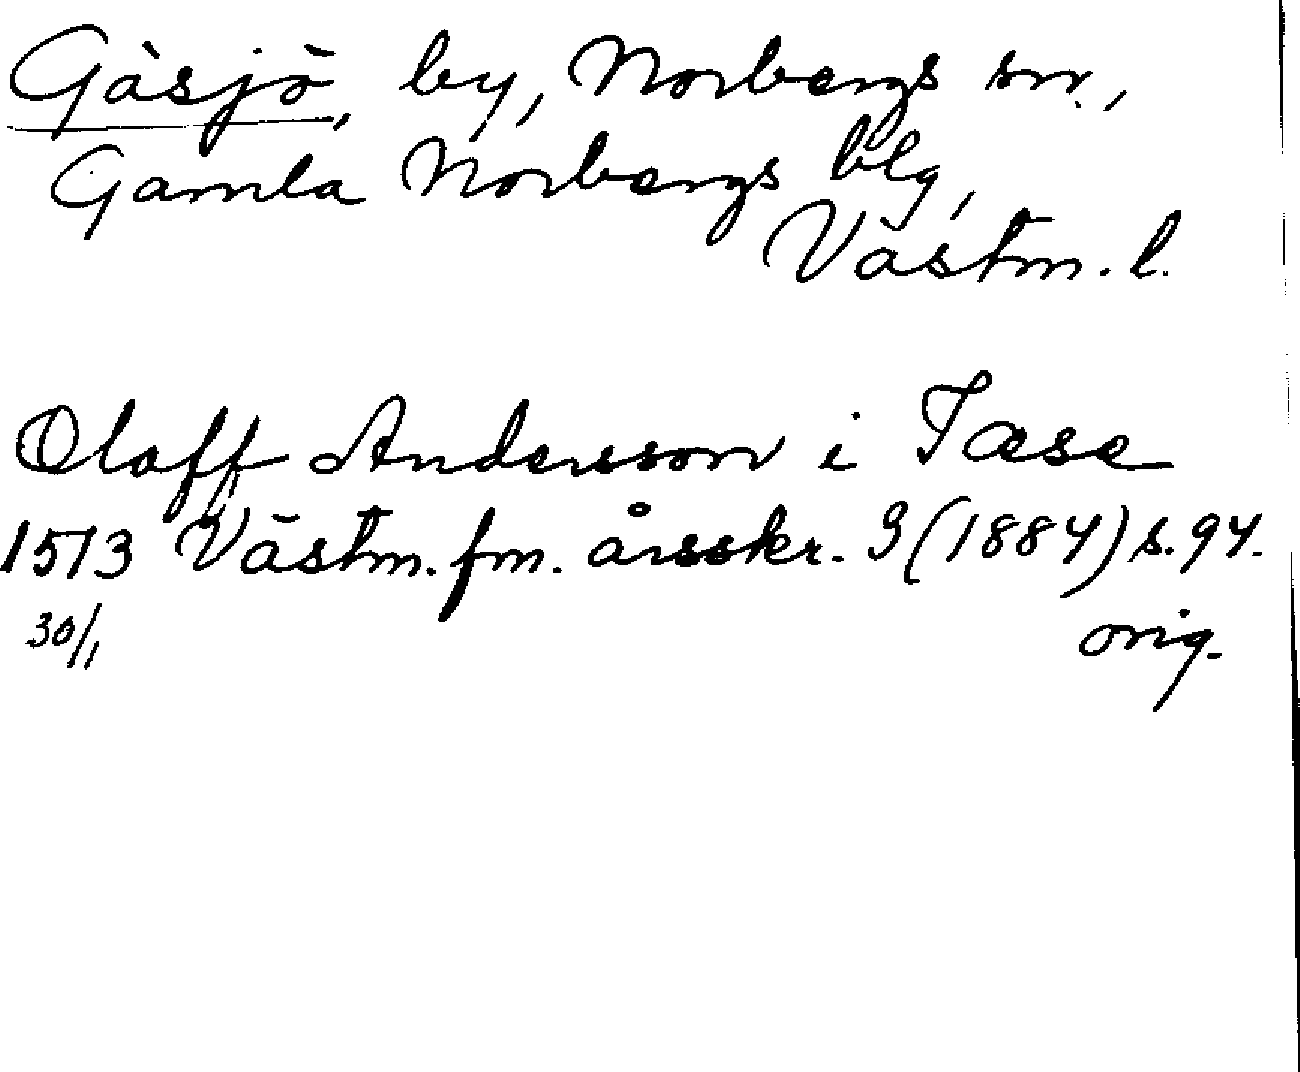 Gåsjö, by, Norbergs sn.,
Gamla Norbergs blg,
Västm. l.
Olaff Andersson i Tæse
1513 Västm. fm. årsskr. 3 (1884) s. 94.
30/1 orig.